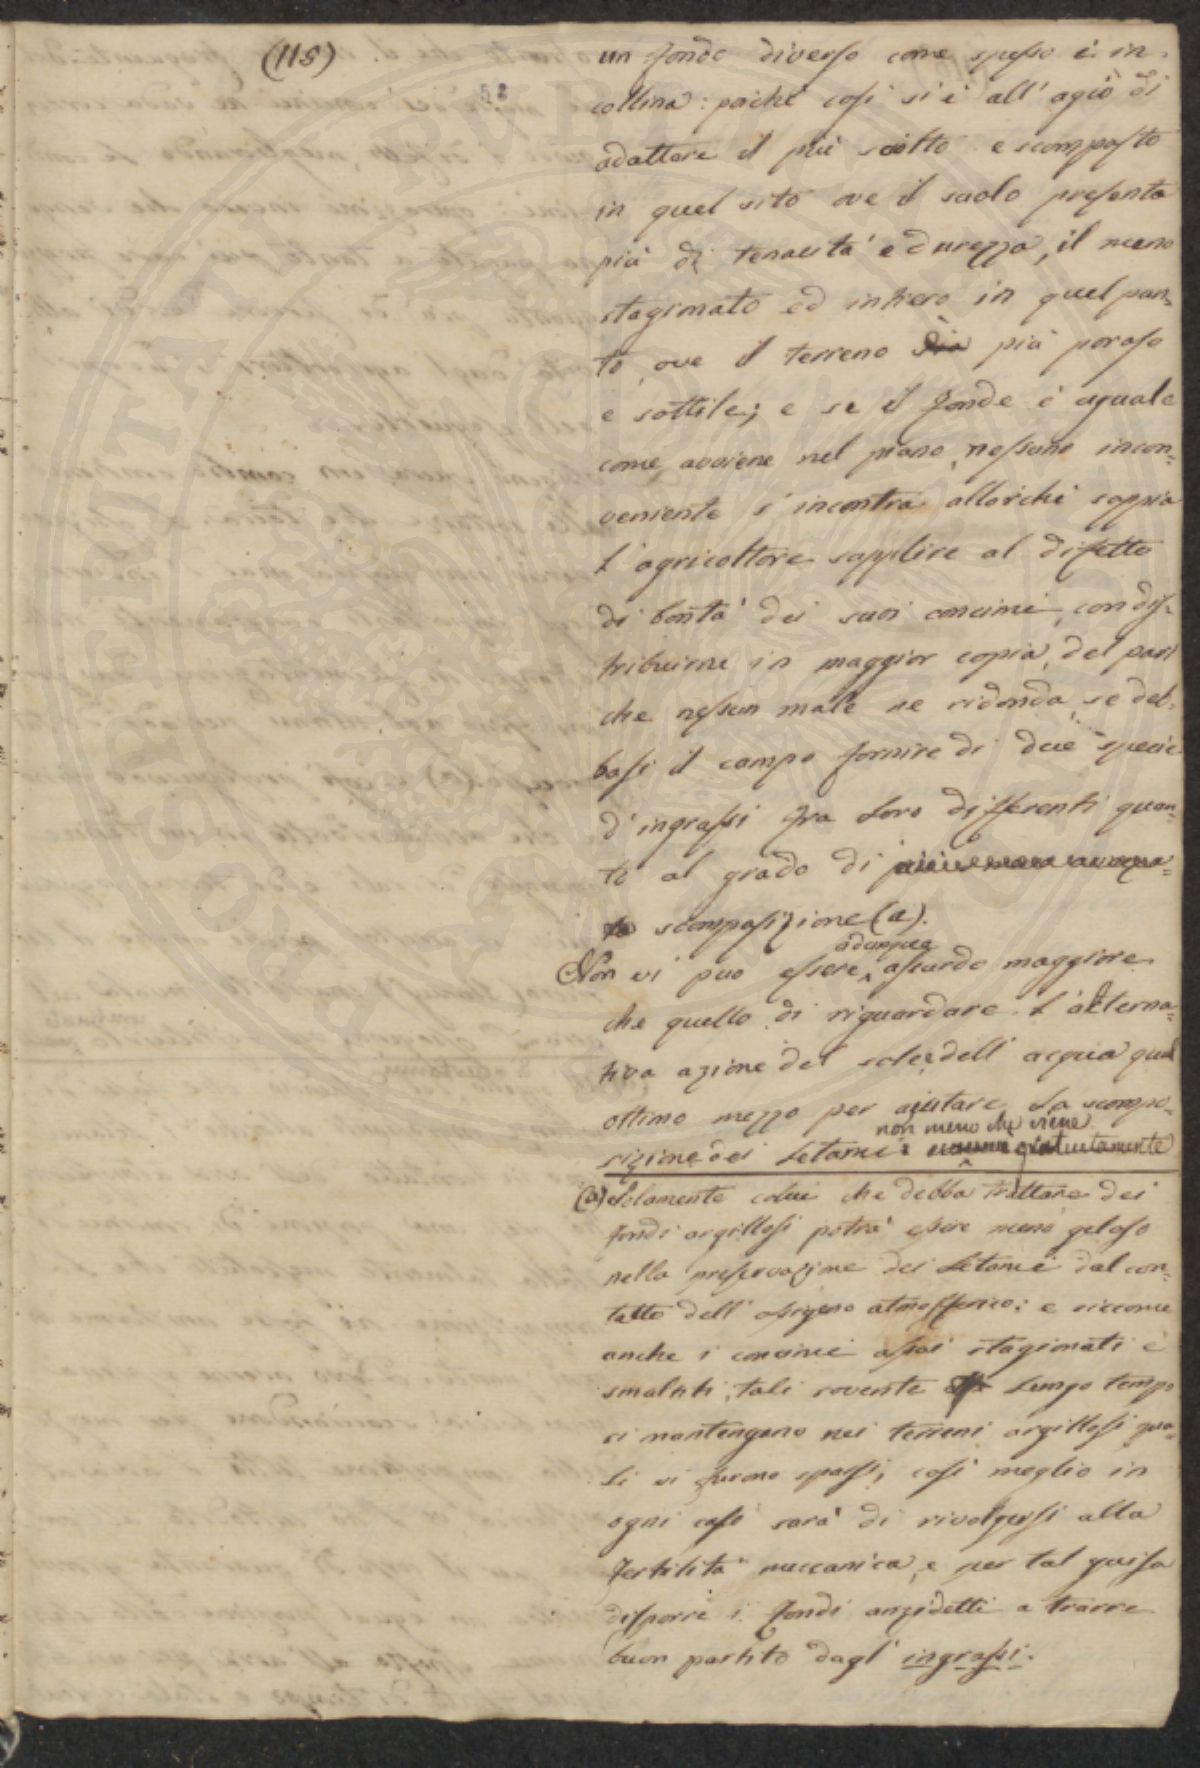 (118)
52
un fondo diverso come spesso è in
collina: poiché così si è all'agio di
adattare il più sciolto e scomposto
in quel sito ove il suolo presenta
più di tenacità e durezza, il meno
stagionato ed intiero in quel pun-
to, ove il terreno sia più poroso
e sottile; e se il fondo è uguale
come avviene nel piano, nessuno incon-
veniente s'incontra allorché sappia
l'agricoltore supplire al difetto
di bontà dei suoi concimi, con dis-
tribuirne in maggior copia, del pari
che nessun male ne ridonda, se deb-
basi il campo fornire di due specie
d'ingrassi fra loro differenti quan-
to al grado di
scomposizione (a).
adunque
Non vi può essere assurdo maggiore
che quello di riguardare l'alterna-
tiva azione del sole e dell'acqua qual
ottimo mezzo per aiutare la scompo-
non meno che viene
sizione dei letami: gratuitamente
(a) Solamente colui che debba trattare dei
fondi argillosi potrà essere meno geloso
nella preservazione dei letami dal con-
tatto dell'ossigeno atmosferico: e siccome
anche i concimi assai stagionati e
smaltiti, tali sovente lungo tempo
si mantengono nei terreni argillosi qua-
li vi furono sparsi, così meglio in
ogni caso sarà di rivolgersi alla
fertilità meccanica, e per tal guisa
disporre i fondi anzidetti a trarre
buon partito dagl'ingrassi.